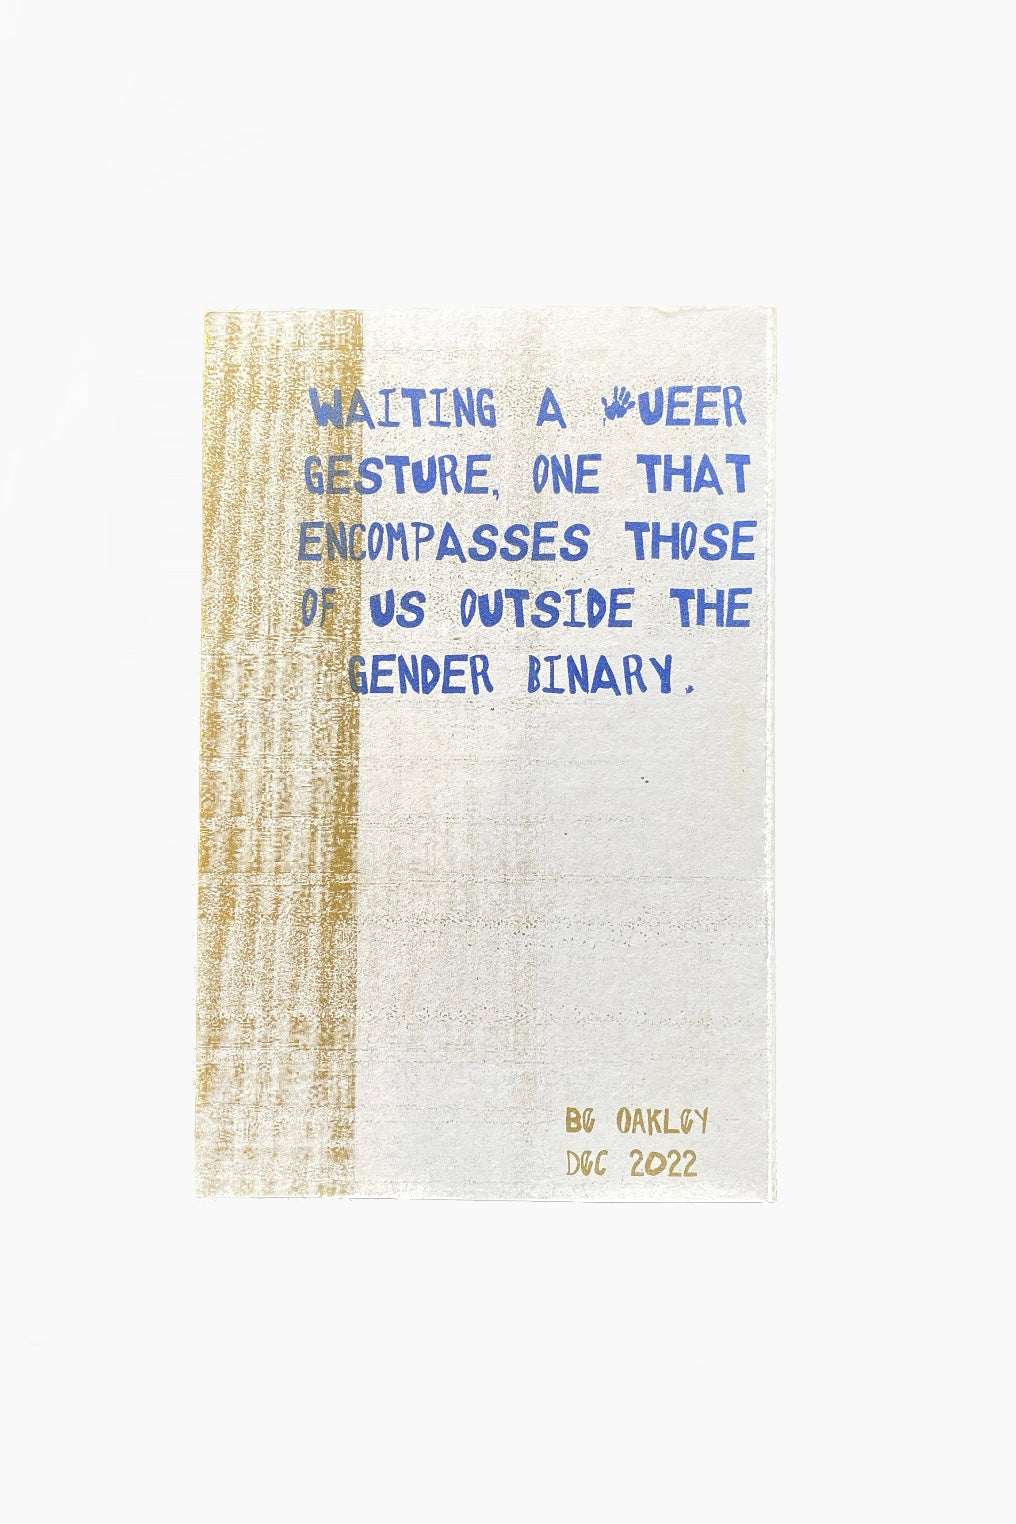 WAITING A UEER
GESTURE, ONE THAT
ENCOMPASSES THOSE
OF US OUTSIDE THE
GENDER BINARY.
BE OAKLEY
DEC 2022